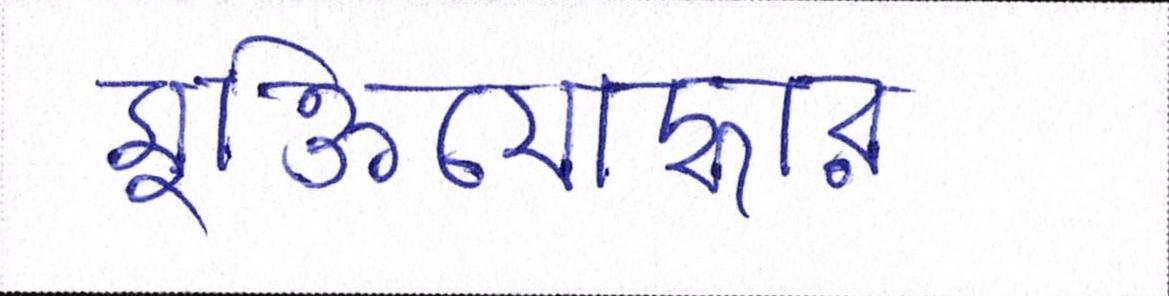 মুক্তিযোদ্ধার